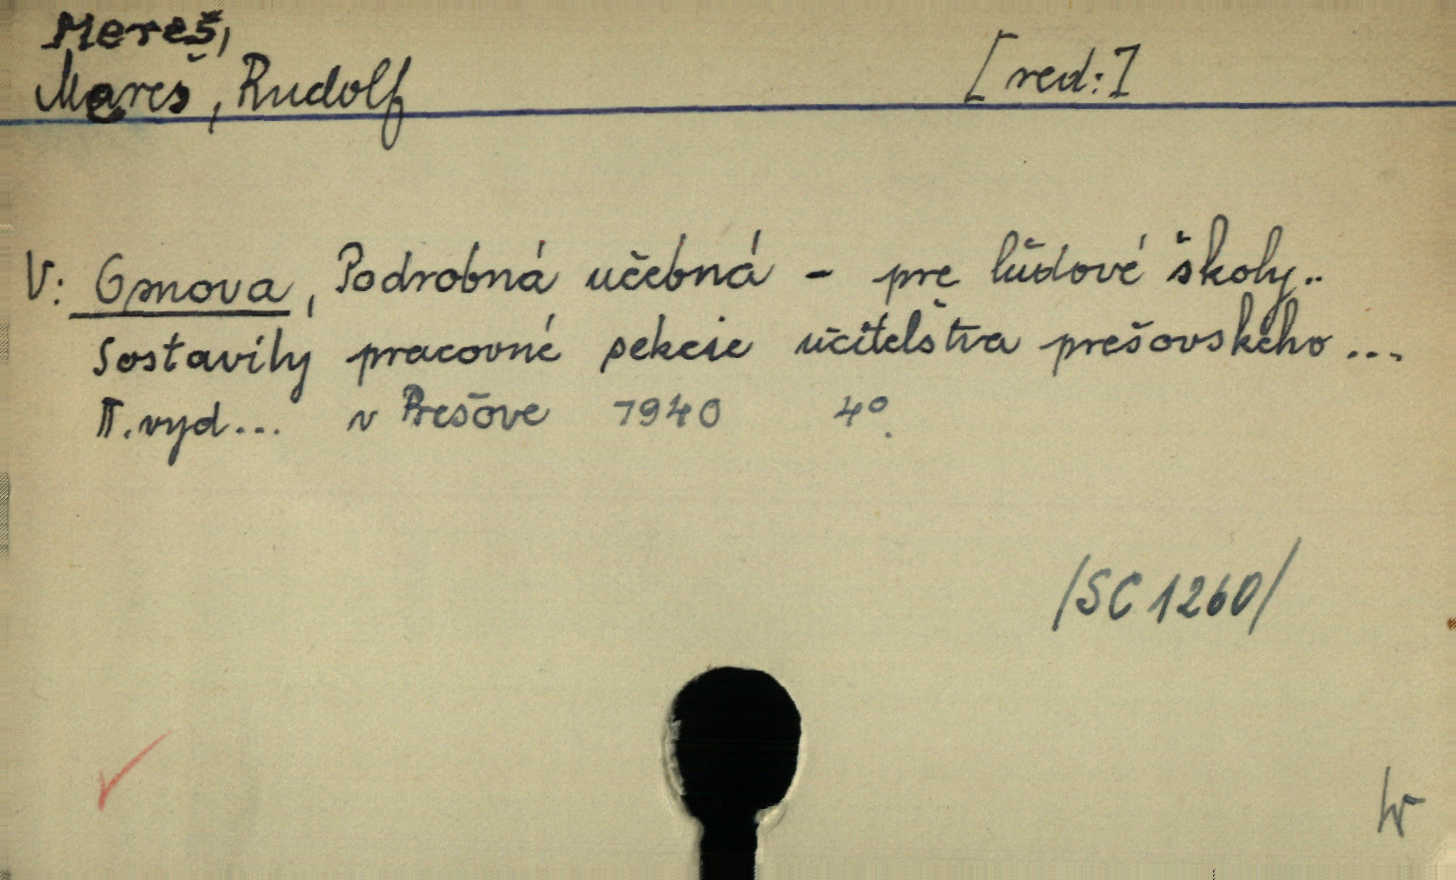 Mereš,
Mereš, Rudolf [red:]
V: Osnova, Podrobná učebná - pre ľudové školy..
Sostavily pracovné sekcie učiteľstva prešovského...
II. vyd... v Prešove 1940 4°.
/SC 1260/